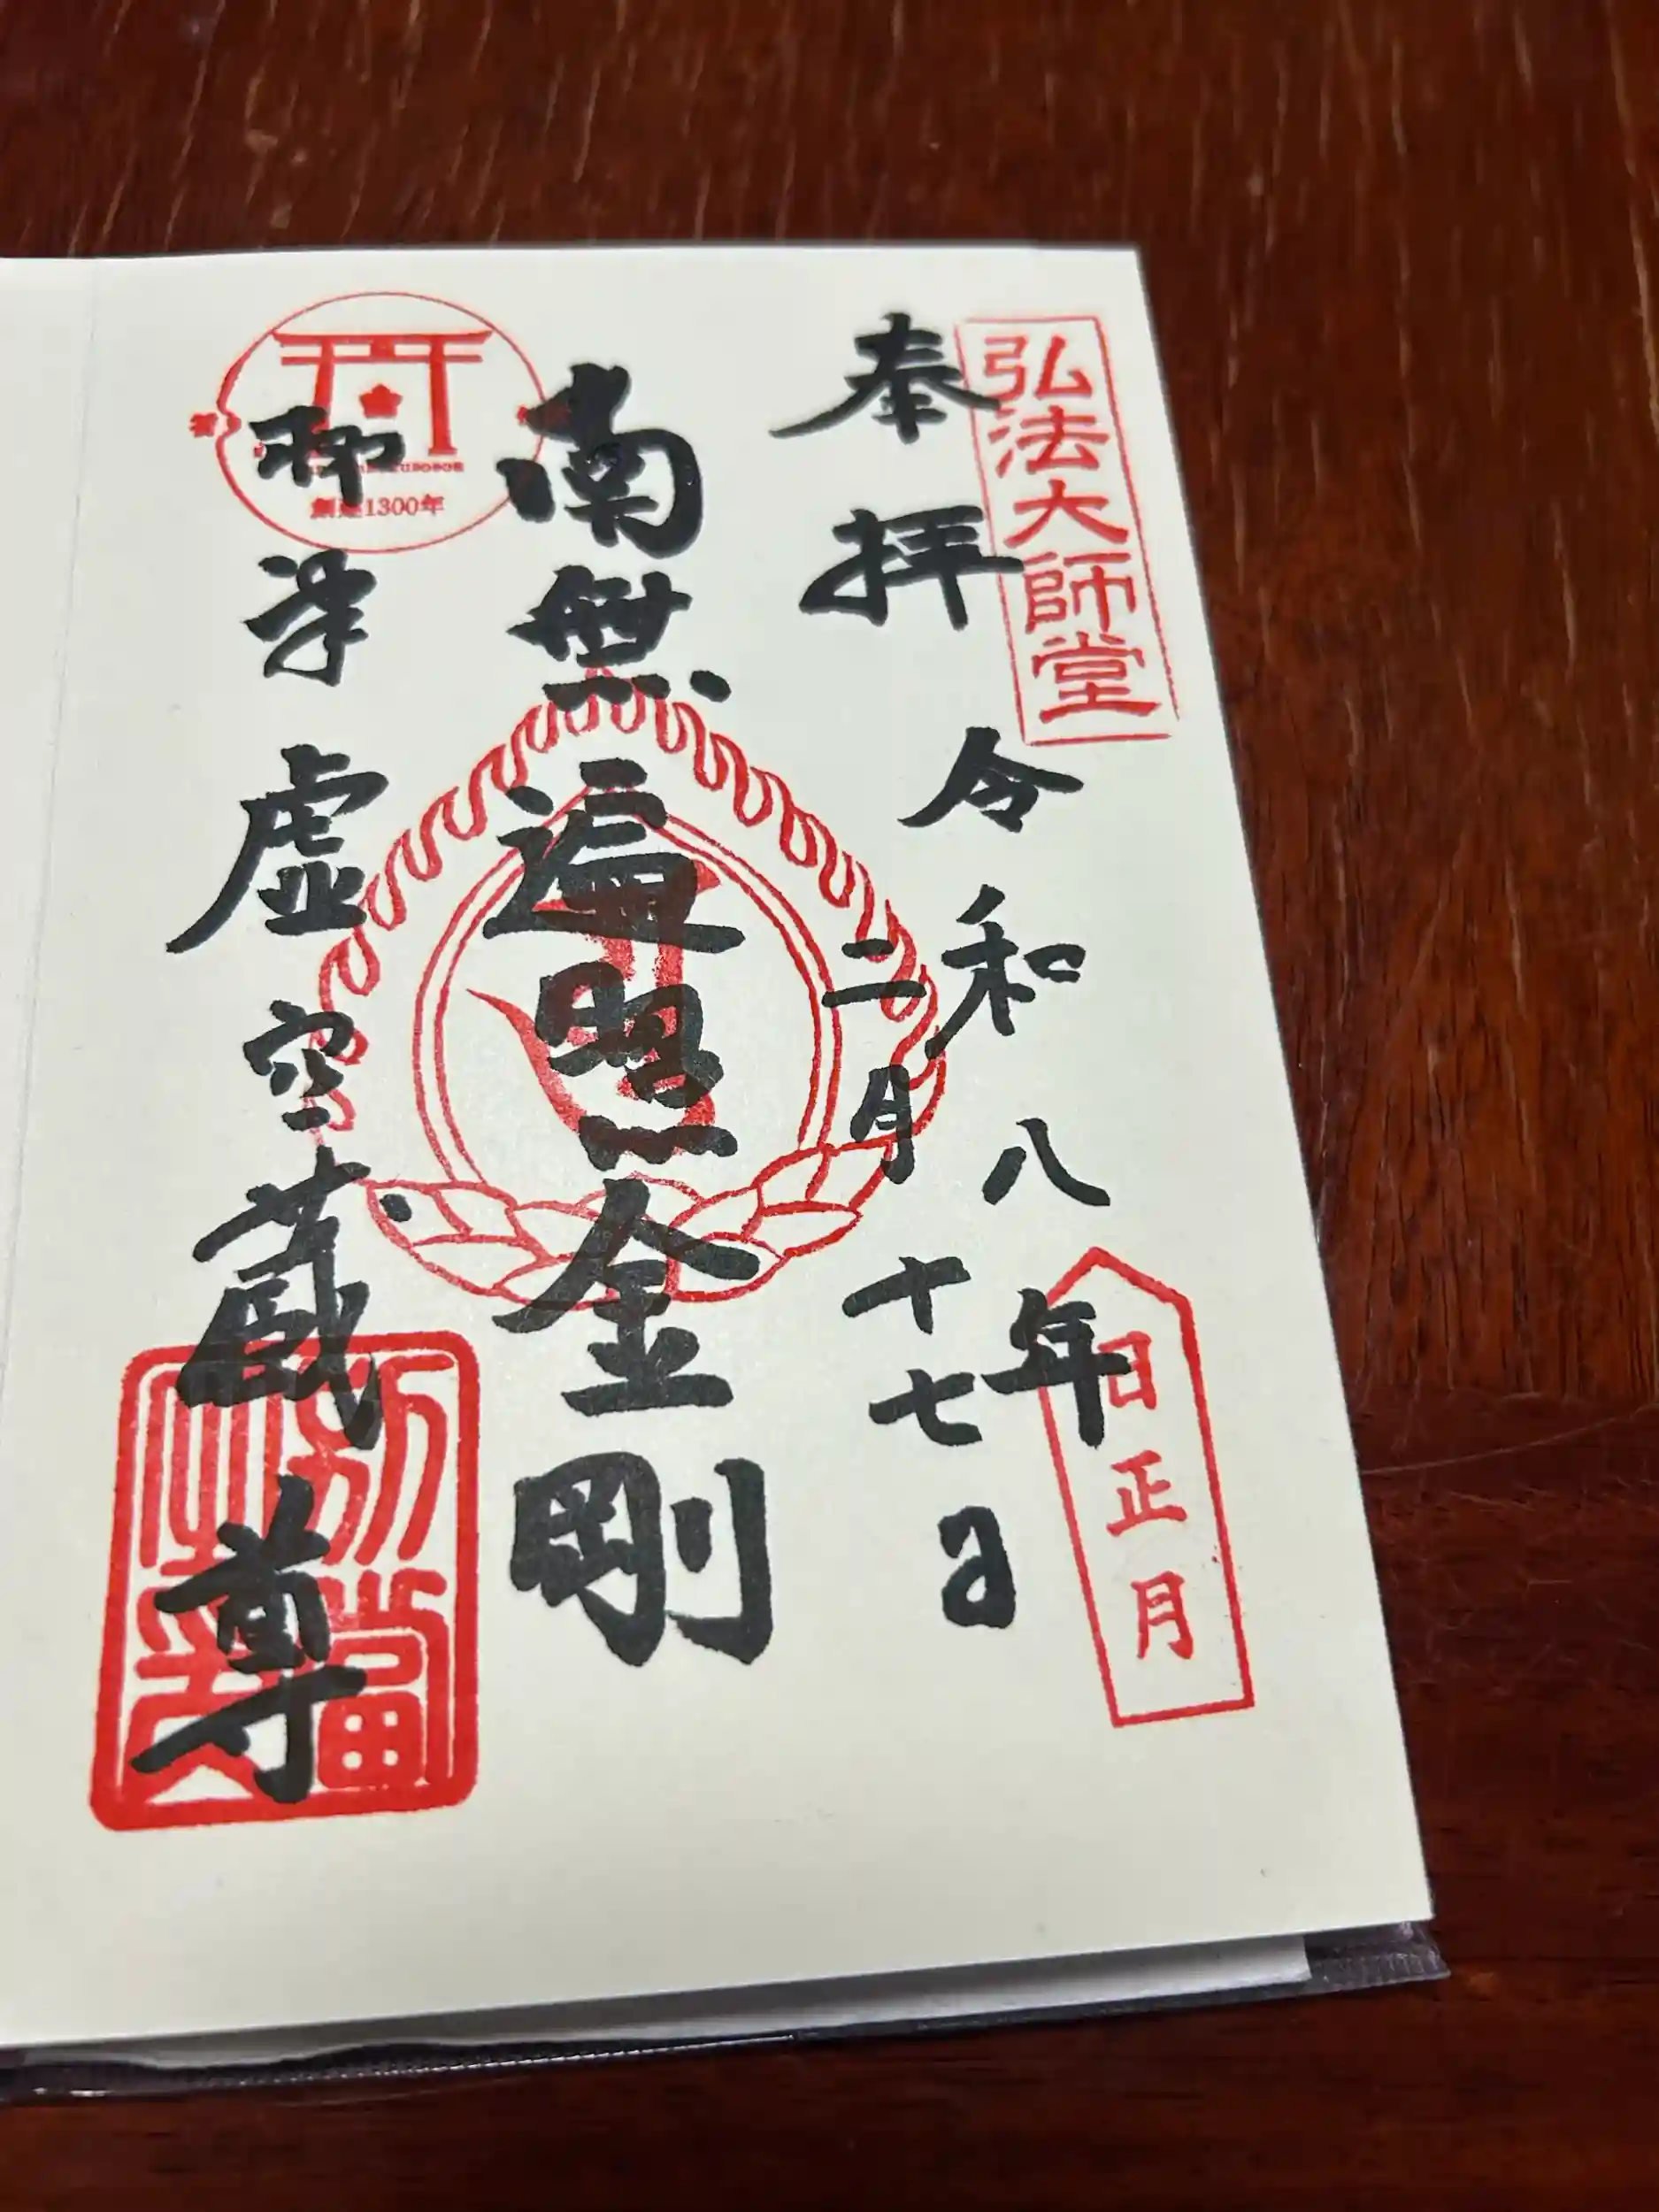 弘法大師堂
旧正月
奉拝
令和八年
二月十七日
南無遍照金剛
御筆虚空蔵尊
創建1300年